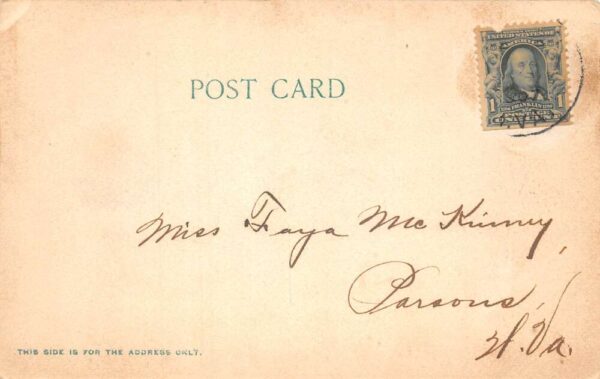 UNITED STATES OF
AMERICA
1 FRANKLIN 1
POST CARD
Miss Faya Mc Kinney,
Parsons,
W. Va.
THIS SIDE IS FOR THE ADDRESS ONLY.